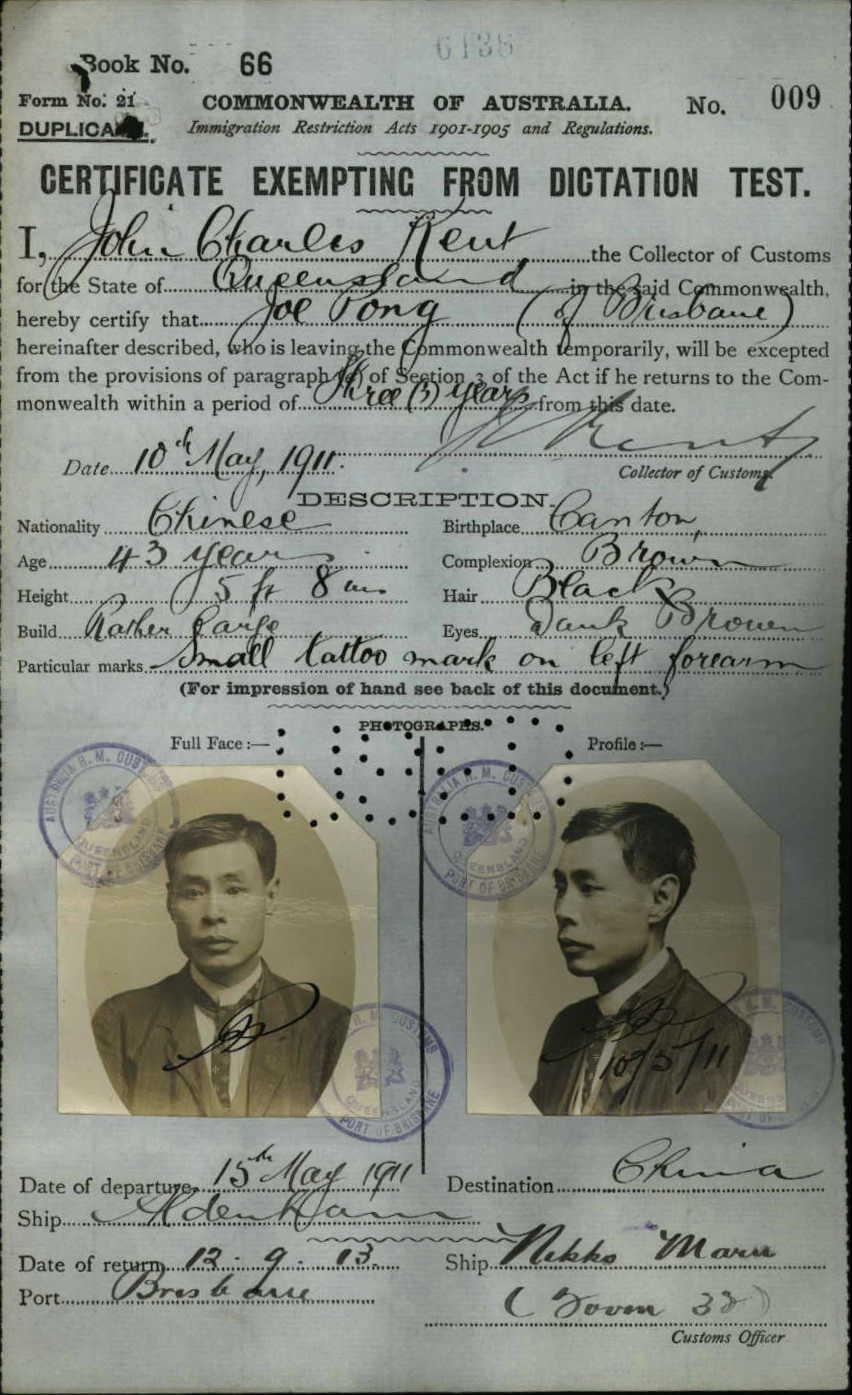 6138
Book No. 66
Form No. 21 COMMONWEALTH OF AUSTRALIA. No. 009
DUPLICA Immigration Restriction Acts 1901-1905 and Regulations.
CERTIFICATE EXEMPTING FROM DICTATION TEST.
I, John Charles Kent the Collector of Customs
for the State of Queensland in the said Commonwealth,
hereby certify that Joe Pong (of Brisbane)
hereinafter described, who is leaving the Commonwealth temporarily, will be excepted
from the provisions of paragraph (a) of Section 3 of the Act if he returns to the Com-
monwealth within a period of Three (3) years from this date.
Date 10th May, 1911. Kent
Collector of Customs.
DESCRIPTION.
Nationality Chinese Birthplace Canton,
Age 43 years Complexion Brown
Height 5 ft 8 ins Hair Black
Build Rather Large Eyes Dark Brown
Particular marks Small tattoo mark on left forearm
(For impression of hand see back of this document.)
PHOTOGRAPHS.
Full Face :— Profile :—
AUSTRALIA H. M. CUSTOMS QUEENSLAND PORT OF BRISBANE
AUSTRALIA H. M. CUSTOMS QUEENSLAND PORT OF BRISBANE
H. M. CUSTOMS QUEENSLAND PORT OF BRISBANE
H. M. CUSTOMS QUEENSLAND PORT OF
10/5/11
Date of departure 15th May 1911 Destination China
Ship Aldenham
Date of return 12 . 9 . 13. Ship Nikko Maru
Port Brisbane
Customs Officer